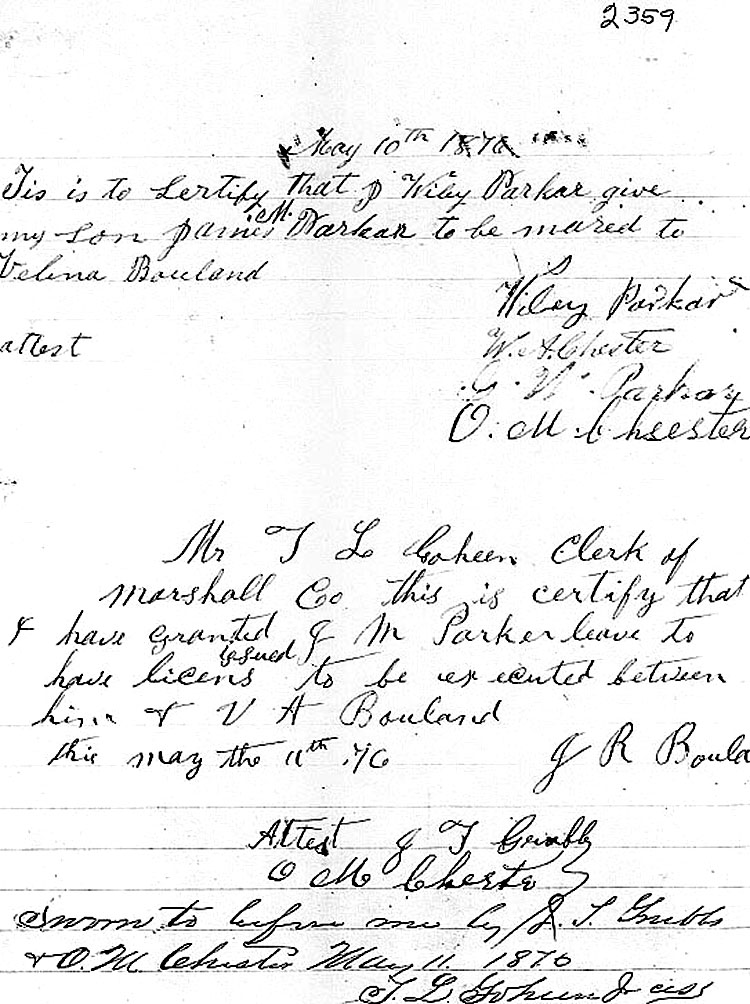 2359
May 10th 1876
Tis is to Sertify that I Wiley Parkar give
my Son James M. Parkar to be mared to
Velina Bouland
Wiley Parkar
attest
W. A. Chester
G. W. Parkar
O. M. Chsester
Mr T L Goheen Clerk of
Marshall Co this is certify that
I have granted J M Parker leave to
have licens issued to be executed between
him & V A Bouland
this may the 11th 76
J R Boula
Attest J T Grubbs
O M Chester
Sworn to before me by J. T. Grubbs
& O. M. Chester May 11 1876
T. L. Goheen